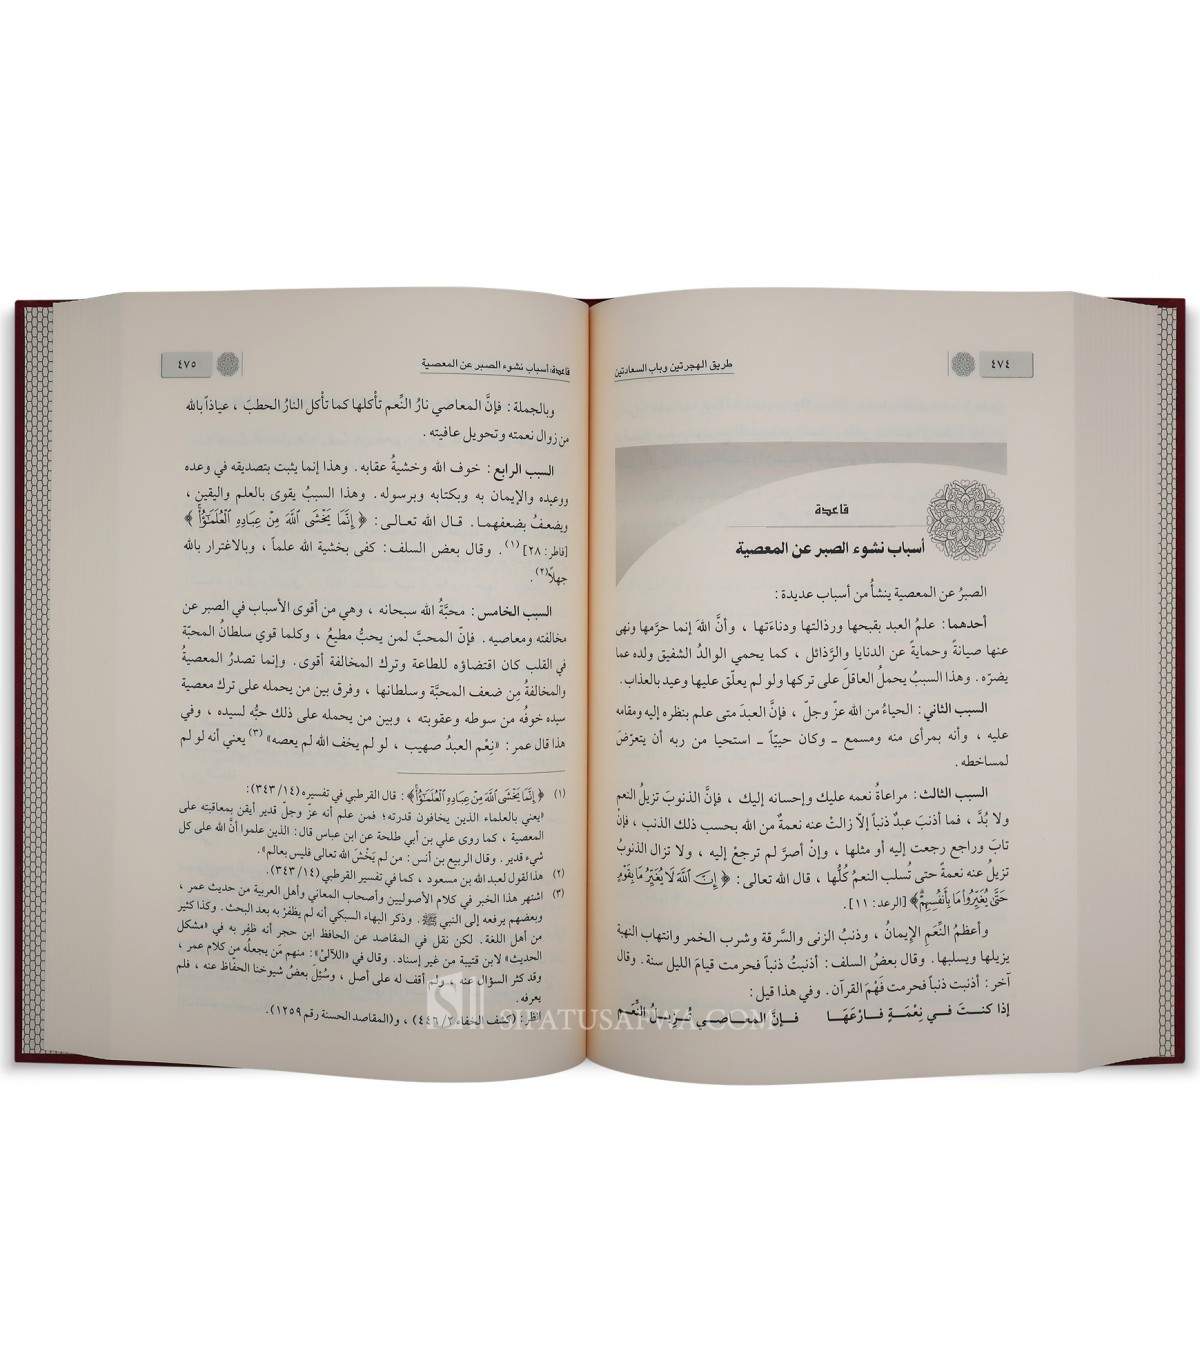 ٤٧٤
طريق الهجرتين وباب السعادتين
قاعدة
أسباب نشوء الصبر عن المعصية
الصبرُ عن المعصية ينشأُ من أسباب عديدة :
أحدهما : علمُ العبد بقبحها ورذالتها ودناءَتها ، وأنَّ اللهَ إنما حرَّمها ونهى
عنها صيانةً وحمايةً عن الدنايا والرَّذائل ، كما يحمي الوالدُ الشفيق ولده عما
يضرّه . وهذا السببُ يحملُ العاقلَ على تركها ولو لم يعلّق عليها وعيد بالعذاب .
السبب الثاني : الحياءُ من الله عزّ وجلّ ، فإنَّ العبدَ متى علم بنظره إليه ومقامه
عليه ، وأنه بمرأى منه ومسمع ــ وكان حييّاً ــ استحيا من ربه أن يتعرّضَ
لمساخطه .
السبب الثالث : مراعاةُ نعمه عليك وإحسانه إليك ، فإنَّ الذنوبَ تزيلُ النعم
ولا بُدَّ ، فما أذنبَ عبدٌ ذنباً إلاّ زالتْ عنه نعمةٌ من الله بحسب ذلك الذنب ، فإنْ
تابَ وراجع رجعت إليه أو مثلها ، وإنْ أصرَّ لم ترجعْ إليه ، ولا تزال الذنوبُ
تزيلُ عنه نعمةً حتى تُسلب النعمُ كُلُّها ، قال الله تعالى : ﴿ إِنَّ ٱللَّهَ لَا يُغَيِّرُ مَا بِقَوْمٍ
حَتَّىٰ يُغَيِّرُوا۟ مَا بِأَنفُسِهِمْ ﴾ [الرعد : ١١] .
وأعظمُ النِّعَمِ الإيمانُ ، وذنبُ الزنى والسَّرقة وشرب الخمر وانتهاب النهبة
يزيلها ويسلبها . وقال بعضُ السلف : أذنبتُ ذنباً فحرمت قيامَ الليل سنة . وقال
آخر : أذنبت ذنباً فحرمت فَهْمَ القرآن . وفي هذا قيل :
إذا كنـتَ فـي نِعْمةٍ فـارْعَهَـا فـإنَّ المعـاصـي تُـزيـلُ النِّعَـم
قاعدة: أسباب نشوء الصبر عن المعصية
٤٧٥
وبالجملة : فإنَّ المعاصي نارُ النِّعم تأكلها كما تأكل النارُ الحطبَ ، عياذاً بالله
من زوال نعمته وتحويل عافيته .
السبب الرابع : خوف الله وخشيةُ عقابه . وهذا إنما يثبت بتصديقه في وعده
ووعيده والإيمان به وبكتابه وبرسوله . وهذا السببُ يقوى بالعلم واليقين ،
ويضعفُ بضعفهما . قال الله تعالى : ﴿ إِنَّمَا يَخْشَى ٱللَّهَ مِنْ عِبَادِهِ ٱلْعُلَمَـٰٓؤُا۟ ﴾
[فاطر : ٢٨] (١) . وقال بعض السلف : كفى بخشية الله علماً ، وبالاغترار بالله
جهلاً(٢) .
السبب الخامس : محبَّةُ الله سبحانه ، وهي من أقوى الأسباب في الصبر عن
مخالفته ومعاصيه . فإنّ المحبَّ لمن يحبُّ مطيعُ ، وكلما قوي سلطانُ المحبّة
في القلب كان اقتضاؤه للطاعة وترك المخالفة أقوى . وإنما تصدرُ المعصيةُ
والمخالفةُ مِن ضعف المحبَّة وسلطانها ، وفرق بين من يحمله على ترك معصية
سيده خوفُه من سوطه وعقوبته ، وبين من يحمله على ذلك حبُّه لسيده ، وفي
هذا قال عمر : «نِعْم العبدُ صهيب ، لو لم يخف الله لم يعصه» (٣) يعني أنه لو لم
(١) ﴿ إِنَّمَا يَخْشَى ٱللَّهَ مِنْ عِبَادِهِ ٱلْعُلَمَـٰٓؤُا۟ ﴾ : قال القرطبي في تفسيره (٣٤٣/١٤) :
«يعني بالعلماء الذين يخافون قدرته ؛ فمن علم أنه عزّ وجلّ قدير أيقن بمعاقبته على
المعصية ، كما روى علي بن أبي طلحة عن ابن عباس قال : الذين علموا أنَّ الله على كل
شيء قدير . وقال الربيع بن أنس : من لم يَخْشَ الله تعالى فليس بعالم» .
(٢) هذا القول لعبد الله بن مسعود ، كما في تفسير القرطبي (٣٤٣/١٤) .
(٣) اشتهر هذا الخبر في كلام الأصوليين وأصحاب المعاني وأهل العربية من حديث عمر ،
وبعضهم يرفعه إلى النبي ﷺ . وذكر البهاء السبكي أنه لم يظفرْ به بعد البحث . وكذا كثير
من أهل اللغة . لكن نقل في المقاصد عن الحافظ ابن حجر أنه ظفِر به في «مشكل
الحديث» لابن قتيبة من غير إسناد . وقال في «اللآلئ» : منهم مَن يجعلُه من كلام عمر ،
وقد كثر السؤال عنه ، ولم أقف له على أصل ، وسُئِل بعضُ شيوخنا الحفّاظ عنه ، فلم
يعرفه .
انظر : (كشف الخفاء ، و(المقاصد الحسنة رقم ١٢٥٩) .
SIFATUSAFWA.COM